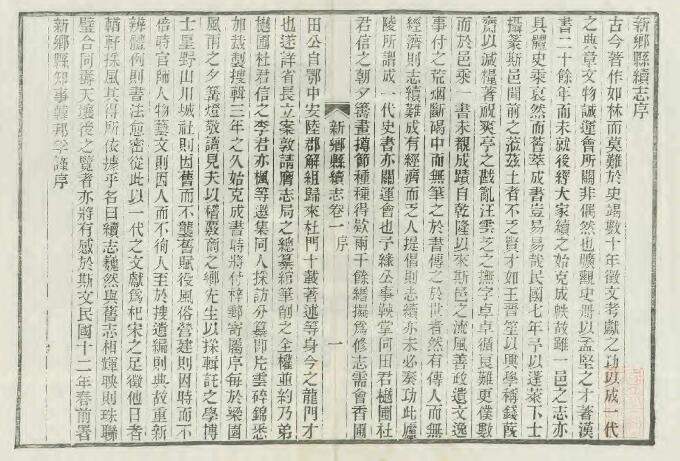 新鄉縣續志序
古今著作如林而莫難於史蹋數十年徵文考獻之功以成一代
之典章文物誠運會所關非偶然也曠觀史册以孟堅之才著漢
書二十餘年而未就後經大家續之始克成帙故雖一邑之志亦
具體史乘裒然而薈萃成書豈易易哉民國七年予以蓬萊下士
攝篆斯邑間前之涖茲土者不乏賢才如王晉笙以興學稱錢蔇
齋以減糧著祝爽亭之戡亂汪雲芝之撫字卓卓循良難更僕數
而於邑乘一書未覩成蹟自乾隆以來斯邑之流風善政遺文逸
事付之荒烟斷碣中而無筆之於書傳之於世者然有傳人而無
經濟則志續難成有經濟而乏人提倡則志續亦未必奏功此廬
陵所謂成一代史書亦關運會也予緣公事鞅掌向田君樾圃杜
君信之朝夕籌畫撙節種種得欵兩千餘緡擬爲修志需會香圃
新鄉縣續志 卷一 序 一
田公自鄂中安陸郡解組歸來杜門十載著述等身今之龍門才
也遂詳省長立案敦請膺志局之總纂綰筆削之全權並約乃弟
樾圃杜君信之李君亦楓等遴集同人採訪分纂即片雲碎錦悉
加裁製搜輯三年之久始克成書時將付梓郵寄屬序每於梁園
風雨之夕篝燈敬讀見夫以稽覈商之鄉先生以採輯託之學博
士星野山川城社則因舊而不襲舊賦役風俗營建則因時而不
倍時官師人物藝文則因人而不徇人至於搜遺編則典故重新
辨體例則書法愈密從此以一代之文獻爲杞宋之足徵他日者
輶軒採風其得所依據乎名曰續志巍然與舊志相輝映則珠聯
璧合同壽天壤後之覽者亦將有感於斯文民國十二年春前署
新鄉縣知事韓邦孚謹序